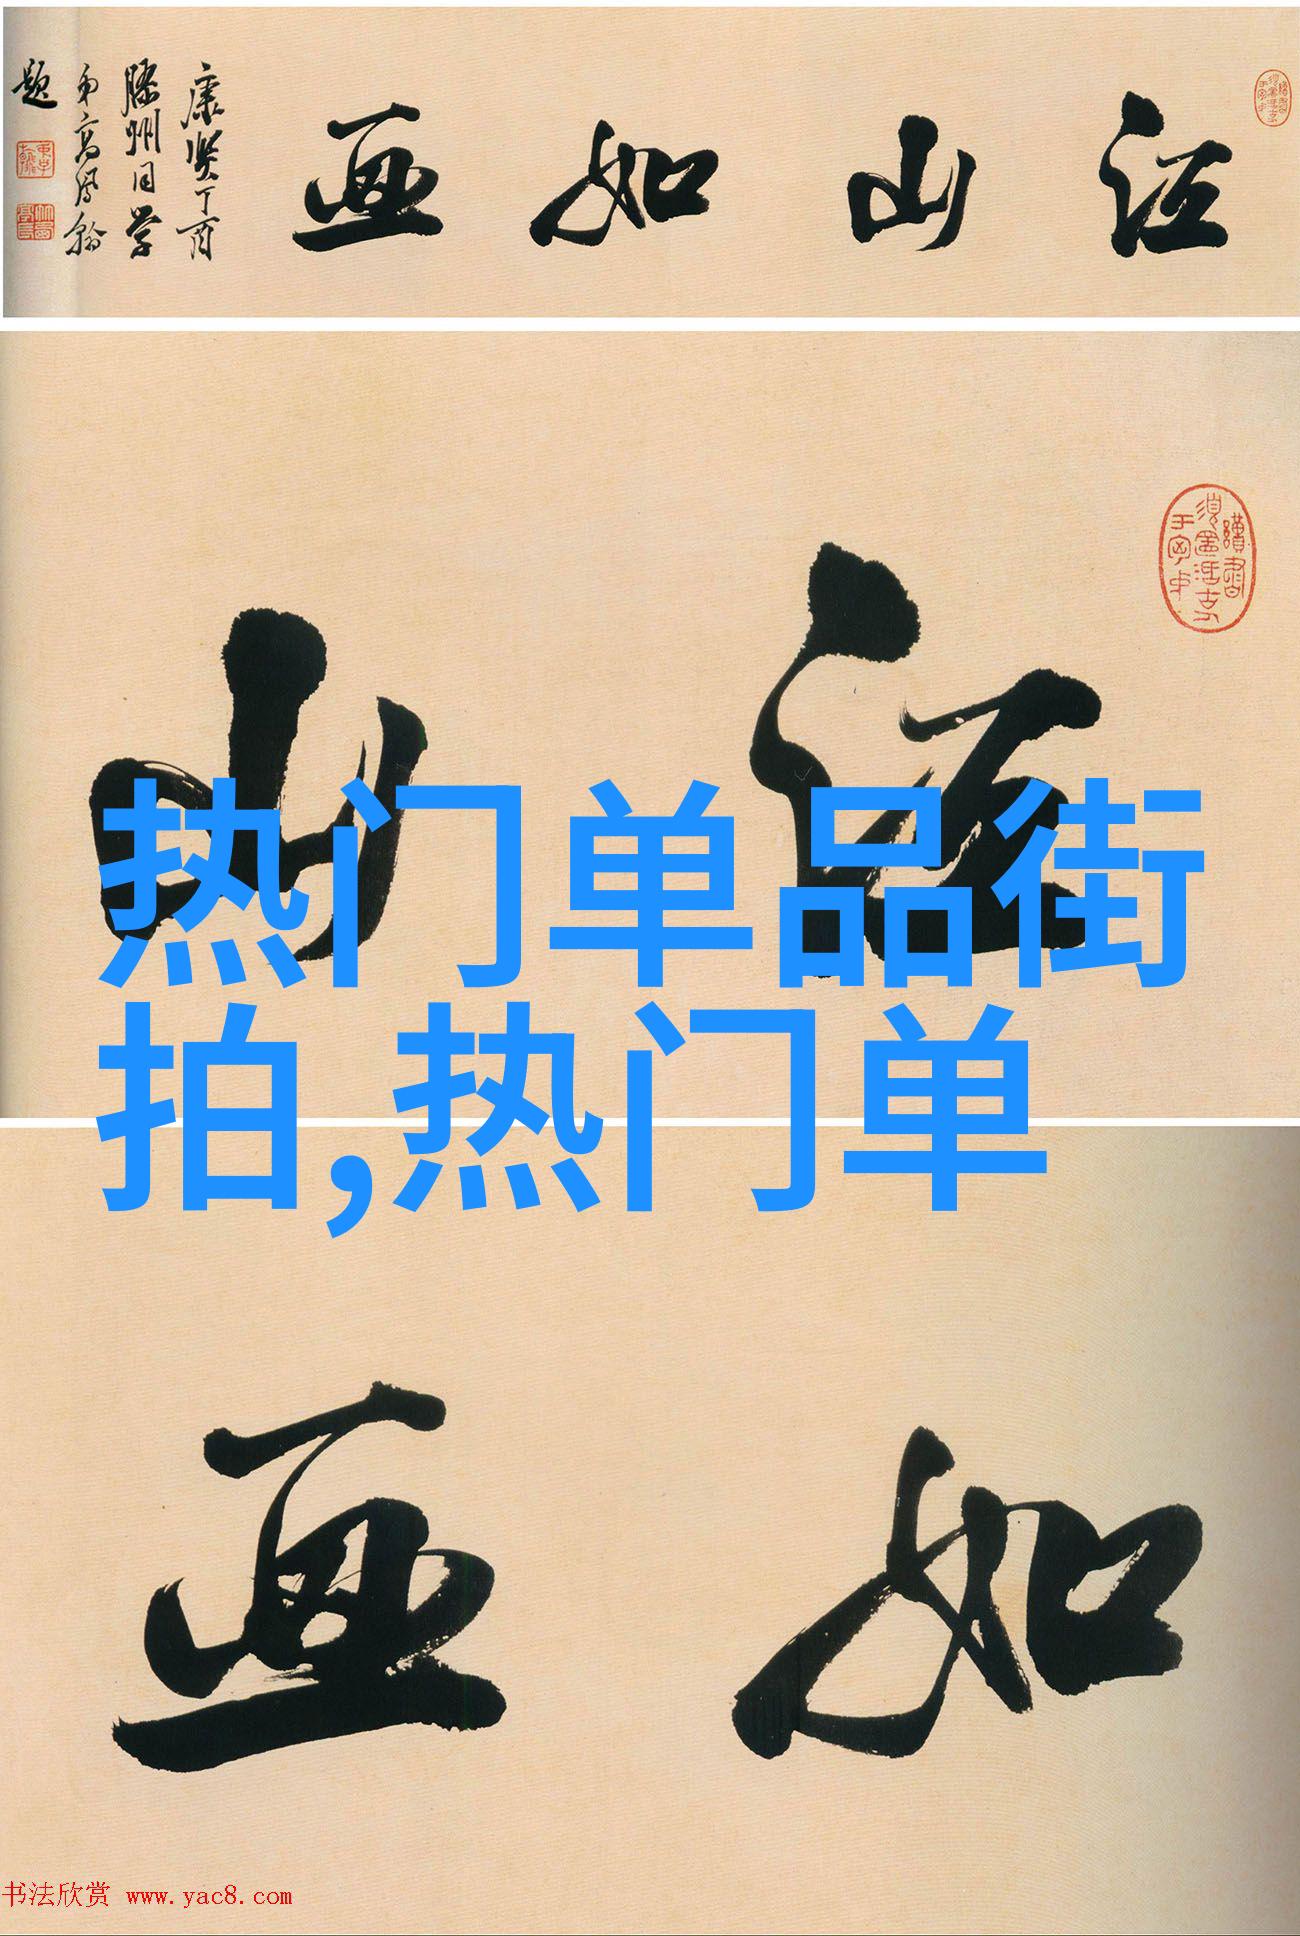 江山如画
康熙丁酉
膠州同学
弟高鳳翰
题
江山
热门单品街
拍,热门单
如画
书法欣赏 www.yac8.com